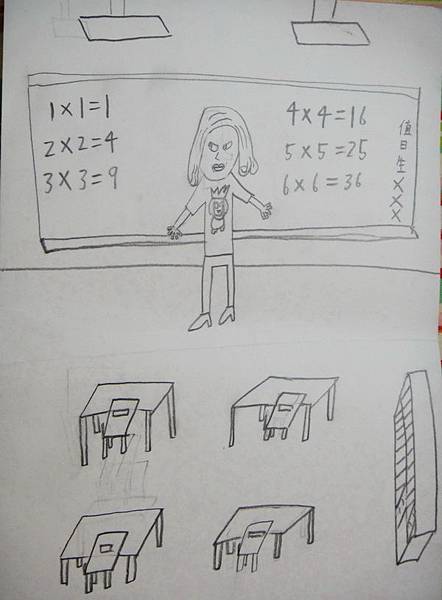 1×1=1
2×2=4
3×3=9
4×4=16
5×5=25
6×6=36
值日生×××